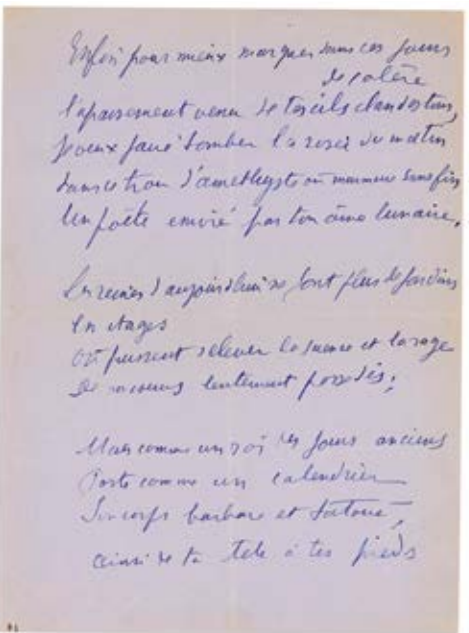 Enfin pour mieux marquer dans ces jours
de colère
l'apaisement venu de tes cils clandestins,
Je veux faire tomber la rosée du matin
dans ce trou d'améthyste où murmure sans fin
Un poète envié par ton âme lunaire.
Les reines d'aujourd'hui ne font plus de jardins
En étages
Où puissent s'élever le silence et la rage
De lentement possédés;
Mais comme un roi des jours anciens
Porte comme un calendrier
Son corps barbare et tatoué,
ainsi de ta tête à tes pieds